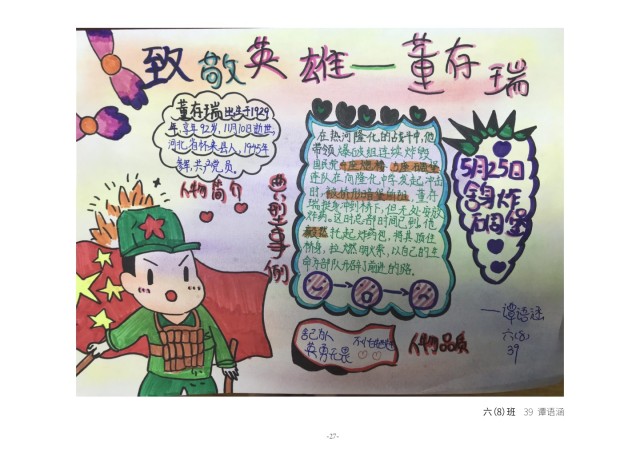 致敬英雄——董存瑞
董存瑞出生于1929
年,享年92岁,11月10日逝世,
河北省怀来县人,1945年
参军,共产党员。
人物简介
典型事例
在热河隆化的战斗中,他
带领爆破组连续炸毁
国民党4座炮楼、5座碉堡
连队在向隆化中学发起冲击
时,
董存
瑞挺身冲到桥下,但无处安放
炸药。这时总部时间已到,他
托起炸药包,将其顶住
桥身,拉燃导火索,以自己的生
命为部队开辟了前进的路。
5月25日
舍身炸
碉堡
舍己为人
英勇无畏
不怕牺牲
人物品质
——谭语涵
六(8)
39
六(8)班 39 谭语涵
-27-